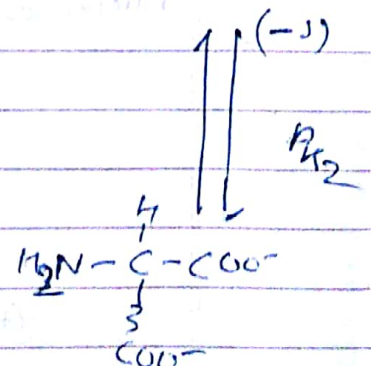 (-1)
PK2
H
H2N-C-COO-
COO-